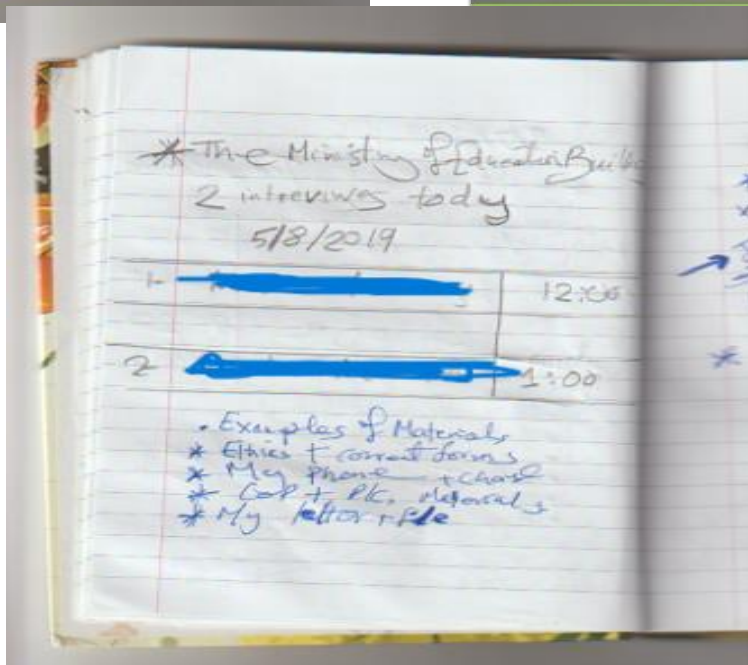 * The Ministry of Education
2 interviwes today
5/8/2019
1- 12:00
2- 1:00
. Examples of Materials
* Ethics + consent forms
* My Phone +
* + Materials
* My letter + file